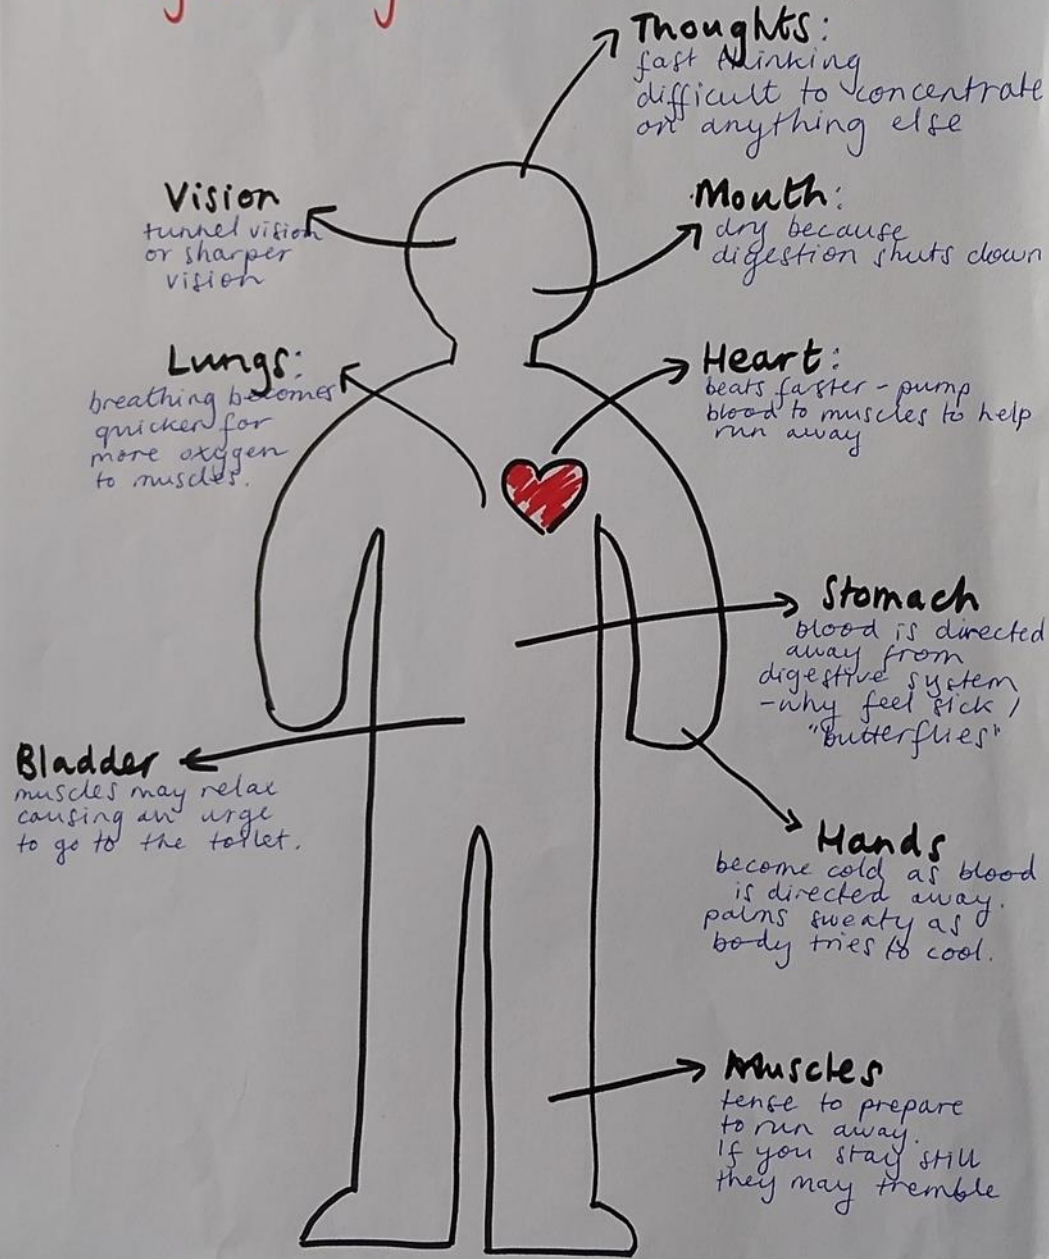 Thoughts:
fast thinking
difficult to concentrate
on anything else
Vision
tunnel vision
or sharper
vision
Mouth:
dry because
digestion shuts down
Lungs:
breathing becomes
quicker for
more oxygen
to muscles.
Heart:
beats faster - pump
blood to muscles to help
run away
Stomach
blood is directed
away from
digestive system
-why feel sick /
"butterflies"
Bladder
muscles may relax
causing an urge
to go to the toilet.
Hands
become cold as blood
is directed away.
palms sweaty as
body tries to cool.
Muscles
tense to prepare
to run away.
If you stay still
they may tremble